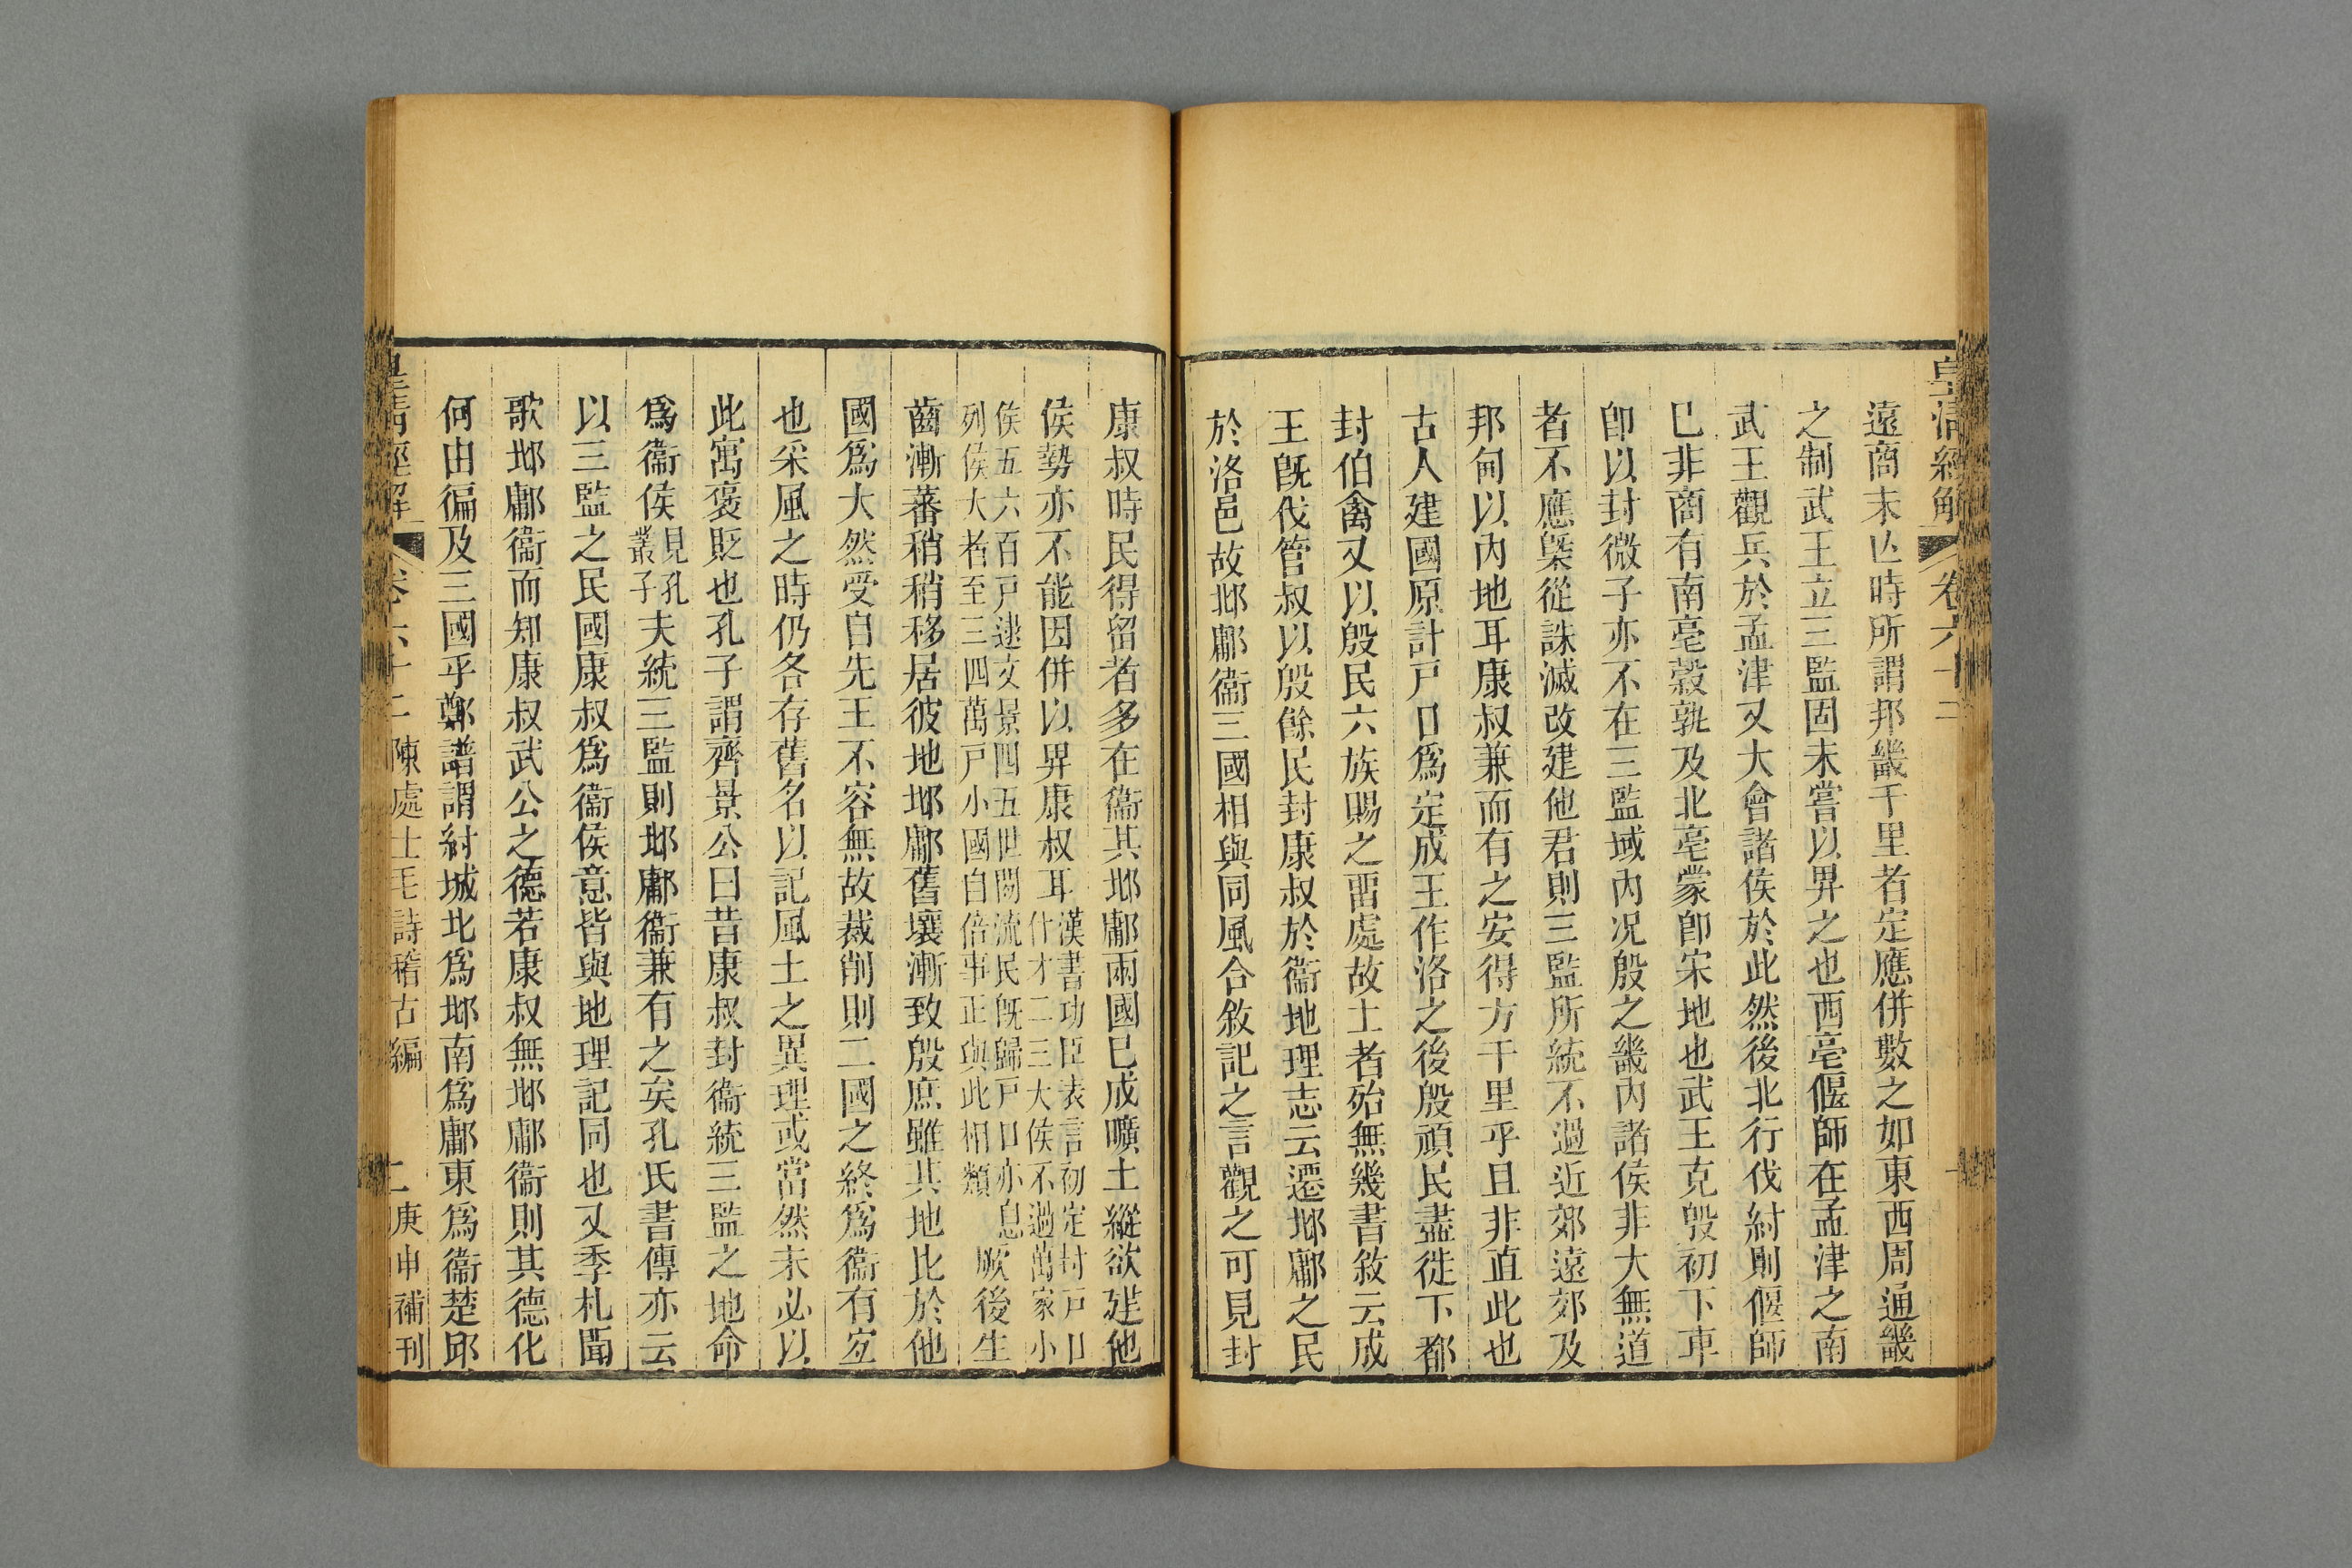 皇清經解 卷六十二
遠商末亾時所謂邦畿千里者定應併數之如東西周通畿
之制武王立三監固未嘗以畀之也西亳偃師在孟津之南
武王觀兵於孟津又大會諸侯於此然後北行伐紂則偃師
已非商有南亳榖孰及北亳蒙卽宋地也武王克殷初下車
卽以封微子亦不在三監域內况殷之畿內諸侯非大無道
者不應槩從誅滅改建他君則三監所統不過近郊遠郊及
邦甸以內地耳康叔兼而有之安得方千里乎且非直此也
古人建國原計戸口爲定成王作洛之後殷頑民盡徙下都
封伯禽又以殷民六族賜之畱處故土者殆無幾書敘云成
王旣伐管叔以殷餘民封康叔於衞地理志云遷邶鄘之民
於洛邑故邶鄘衞三國相與同風合敘記之言觀之可見封
康叔時民得留者多在衞其邶鄘兩國已成曠土縱欲建他
侯勢亦不能因併以畀康叔耳漢書功臣表言初定封戸口什才二三大侯不過萬家小
侯五六百戸逮文景四五世間流民旣歸戸口亦息列侯大者至三四萬戸小國自倍事正與此相類厥後生
齒漸蕃稍稍移居彼地邶鄘舊壤漸致殷庶雖其地比於他
國爲大然受自先王不容無故裁削則二國之終爲衞有宐
也采風之時仍各存舊名以記風土之異理或當然未必以
此寓褒貶也孔子謂齊景公曰昔康叔封衞統三監之地命
爲衞侯見孔叢子夫統三監則邶鄘衞兼有之矣孔氏書傳亦云
以三監之民國康叔爲衞侯意皆與地理記同也又季札聞
歌邶鄘衞而知康叔武公之德若康叔無邶鄘衞則其德化
何由徧及三國乎鄭譜謂紂城北爲邶南爲鄘東爲衞楚邱
皇清經解 卷六十二 陳處士毛詩稽古編 二 庚申補刊